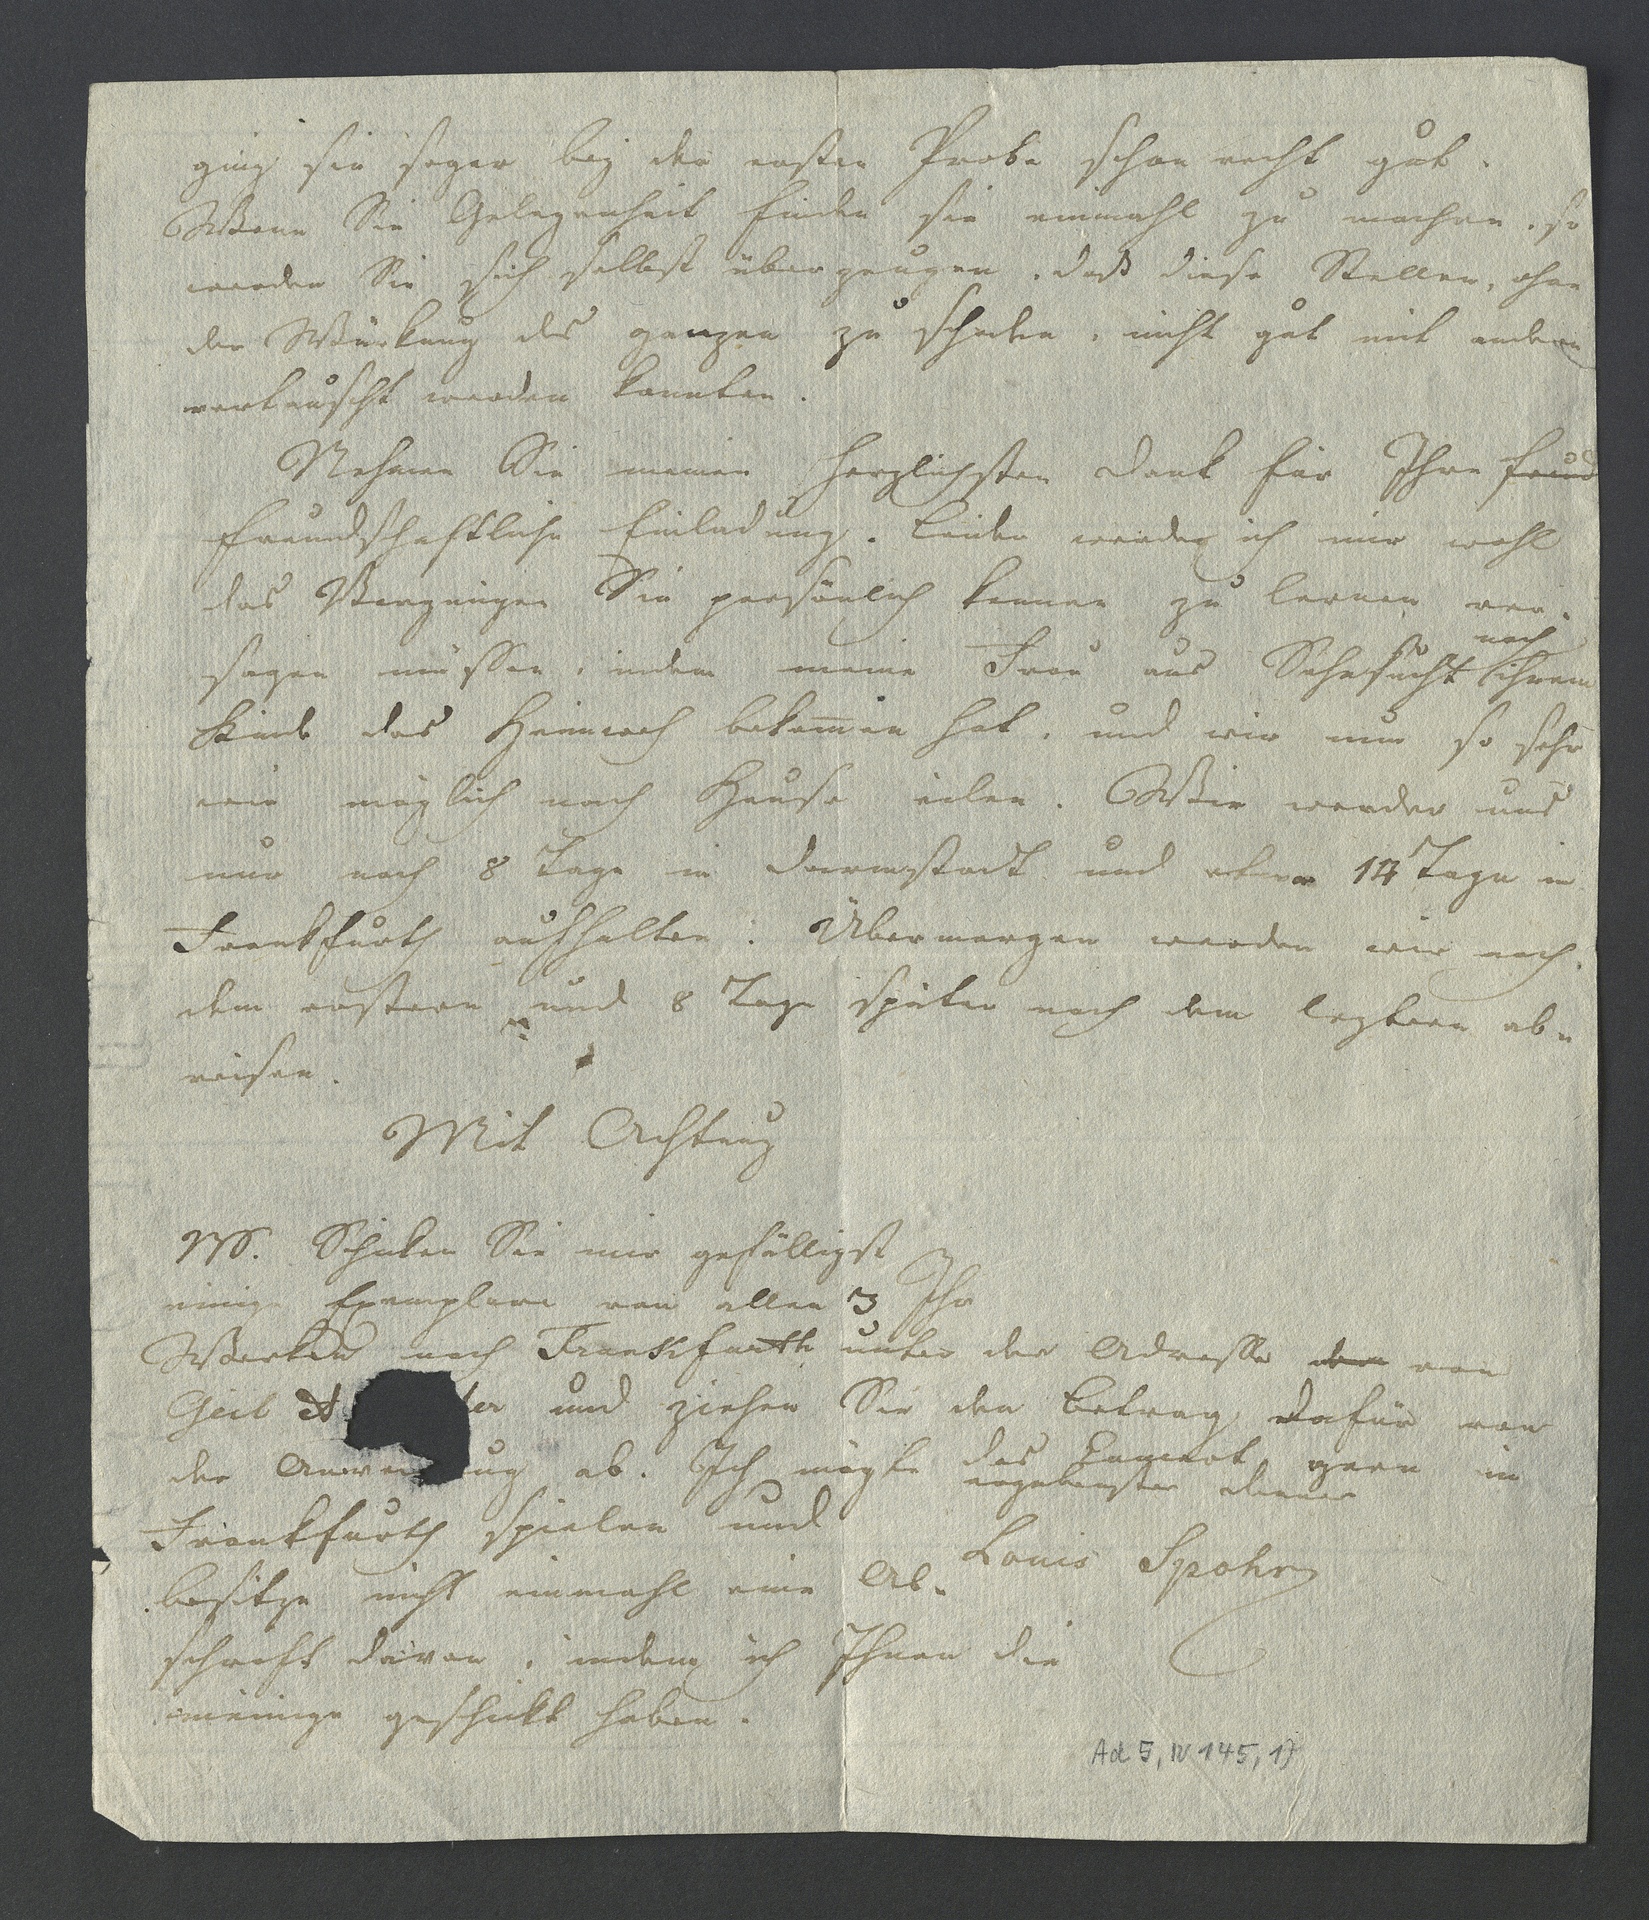 ging sie sogar bey der ersten Probe schon recht gut.
Wenn Sie Gelegenheit finden sie einmahl zu machen, so
werden Sie sich selbst überzeugen, daß diese Stellen, ohne
der Würkung des ganzen zu schaden, nicht gut mit andern
vertauscht werden konnten.
Nehmen Sie meinen herzlichsten Dank für Ihre freund
freundschaftliche Einladung. Leider werde ich mir wohl
das Vergnügen Sie persönlich kennen zu lernen ver-
sagen müssen, indem meine Frau aus Sehnsucht nach ihrem
Kinde das Heimweh bekommen hat, und wir nun so sehr
wie möglich nach Hause eilen. Wir werden uns
nur noch 8 Tage in Darmstadt und etwa 14 Tage in
Frankfurth aufhalten. Übermorgen werden wir nach
dem erstern und 8 Tage später nach dem leztern ab-
reisen.
Mit Achtung
NS. Schicken Sie mir gefälligst
einige Exemplare von allen 3 Ihr
Werken nach Frankfurth unter der Adresse der von
Geil der und ziehen Sie den Betrag dafür von
der Anwei ung ab. Ich mögte das Concert gern in
ergebenster Diener
Frankfurth spielen und
Louis Spohr
besitze nicht einmahl eine Ab-
schrift davon, indem ich Ihnen die
meinige geschickt habe.
Ad 5, IV 145, 1)